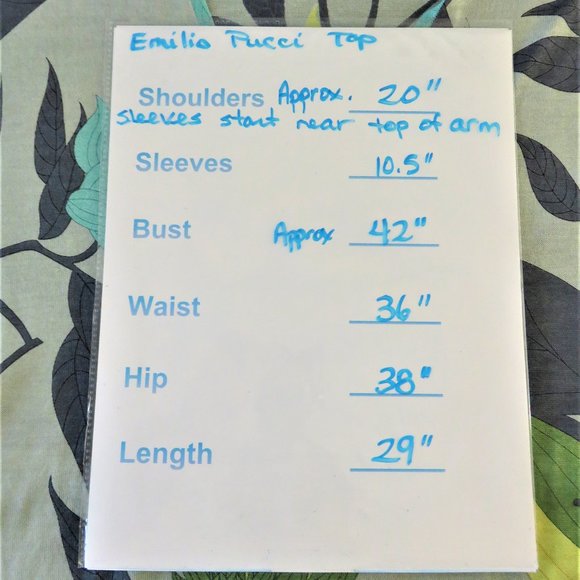 Emilio Pucci Top
Shoulders Approx. 20"
sleeves start near top of arm
Sleeves 10.5"
Bust Approx 42"
Waist 36"
Hip 38"
Length 29"